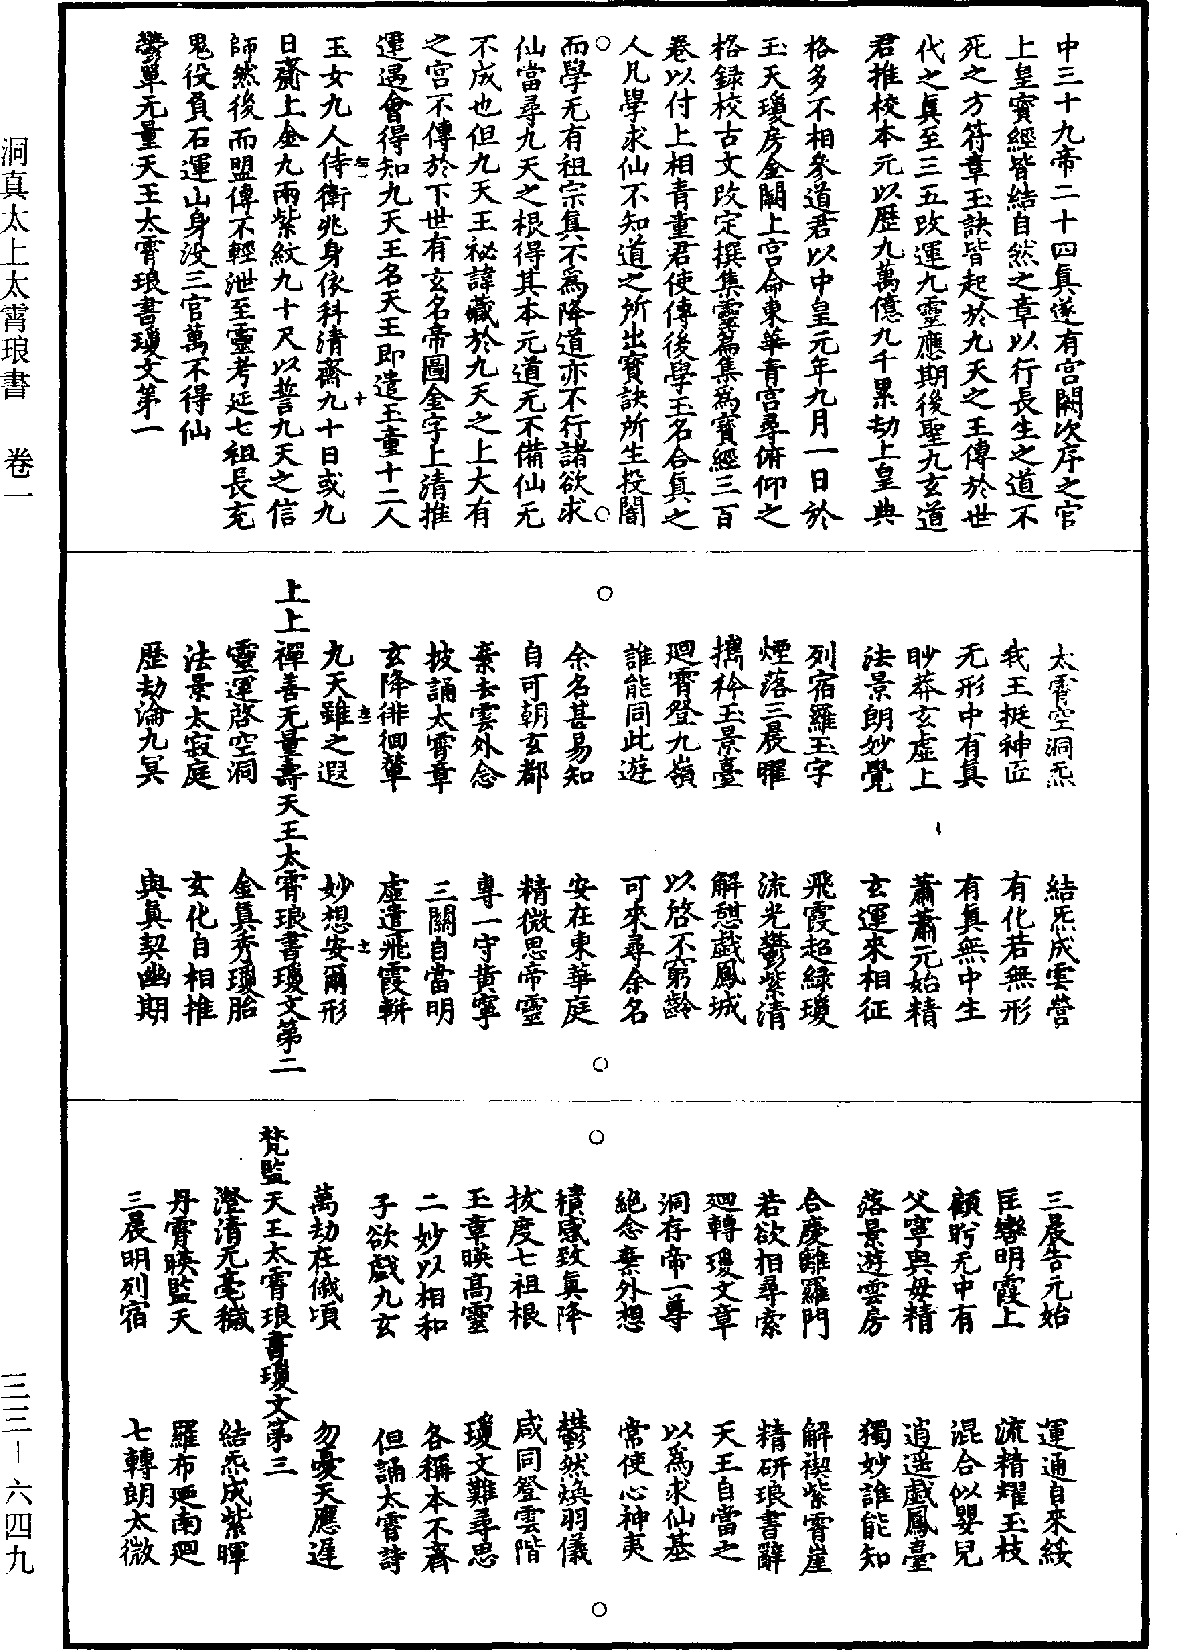 中三十九帝二十四真遂有宮闕次序之官
上皇寶經皆結自然之章以行長生之道不
死之方符章玉訣皆起於九天之王傳於世
代之真至三五改運九靈應期後聖九玄道
君推校本元以歷九萬億九千累劫上皇典
格多不相參道君以中皇元年九月一日於
玉天瓊房金闕上宮命東華青宮尋俯仰之
格錄校古文改定撰集靈篇集為寶經三百
卷以付上相青童君使傳後學玉名合真之
人凡學求仙不知道之所出寶訣所生投闇
而學无有祖宗真不為降道亦不行諸欲求
仙當尋九天之根得其本元道无不備仙无
不成也但九天王祕諱藏於九天之上大有
之宮不傳於下世有玄名帝圖金字上清推
運遇會得知九天王名天王即遣玉童十二人
玉女九人侍衛兆身依科清齋九十日或九
日齋上金九兩紫紋九十尺以誓九天之信
師然後而盟傳不輕泄至靈考延七祖長充
鬼役負石運山身没三官萬不得仙
鬱單无量天王太霄琅書瓊文第一
太霄空洞炁 結炁成雲營
我王挺神匠 有化若無形
无形中有真 有真無中生
眇莽玄虛上 蕭蕭元始精
法景朗妙覺 玄運來相征
列宿羅玉字 飛霞超綠瓊
煙落三晨曜 流光鬱紫清
攜衿玉景臺 解憩戲鳳城
迴霄登九嶺 以啓不窮齡
誰能同此遊 可來尋余名
余名甚易知 安在東華庭
自可朝玄都 精微思帝靈
棄去雲外念 專一守黃寧
披誦太霄章 三關自當明
玄降徘徊輦 虛遣飛霞軿
九天雖之遐 妙想安爾形
上上禪善无量壽天王太霄琅書瓊文第二
靈運啓空洞 金真秀瓊胎
法景太寂庭 玄化自相推
歷劫淪九冥 與真契幽期
三晨告元始 運通自來綏
匡轡明霞上 流精耀玉枝
顧盻无中有 混合似嬰兒
父寧與母精 逍遥戲鳳臺
落景遊雲房 獨妙誰能知
合慶離羅門 解禊紫霄崖
若欲相尋索 精研琅書辭
迴轉瓊文章 天王自當之
洞存帝一尊 以為求仙基
絶念棄外想 常使心神夷
積感致真降 鬱然煥羽儀
拔度七祖根 咸同登雲階
玉章暎高靈 瓊文難尋思
二妙以相和 各稱本不齊
子欲戲九玄 但誦太霄詩
萬劫在俄頃 勿憂天應遲
梵監天王太霄琅書瓊文第三
澄清无毫穢 結炁成紫暉
丹霄暎監天 羅布迊南迴
三晨明列宿 七轉朗太微
洞真太上太霄琅書 卷一
三三－六四九